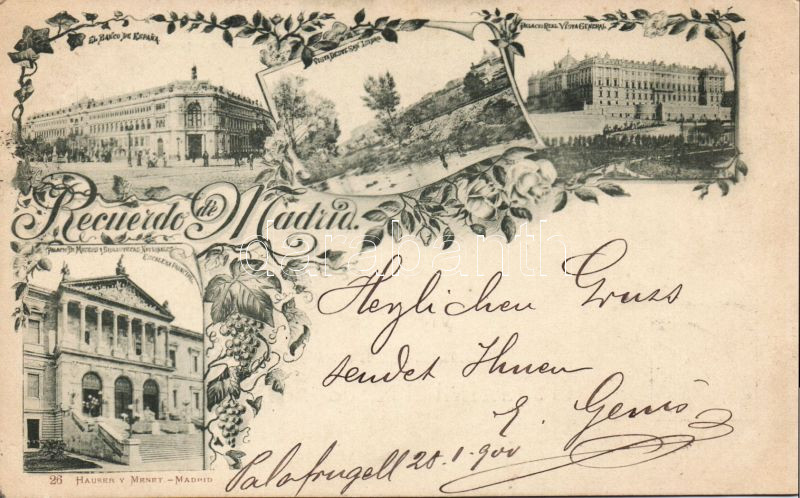 EL BANCO DE ESPAÑA
VISTA DESDE SAN ISIDRO
PALACIO REAL VISTA GENERAL
Recuerdo de Madrid.
PALACIO DE MUSEOS Y BIBLIOTECAS NACIONALES
ESCALERA PRINCIPAL
darabanth
Herzlichen Gruss
sendet Ihnen
E. Genís
Palafrugell 28-1-900
26 HAUSER Y MENET – MADRID